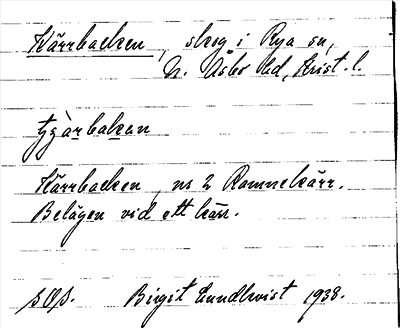 Kärrbacken, skog i Rya sn,
N. Åsbo hd, Krist. l.
Kärrbacken, nr 2 Ramnekärr.
Belägen vid ett kärr.
Birgit Lundkvist 1938.